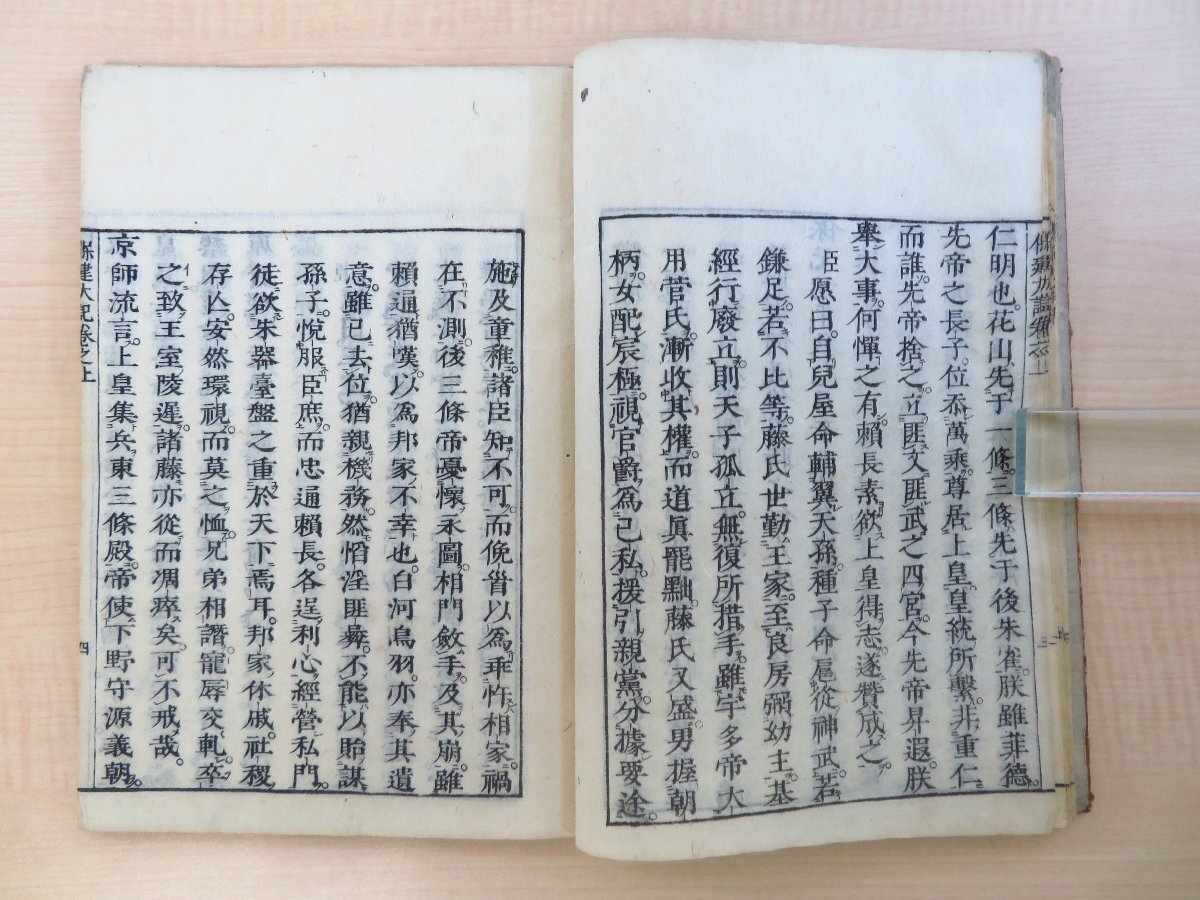 仁明也。花山先于一條。三條先于後朱雀。朕雖菲德。
先帝之長子。位忝萬乘。尊居上皇。皇統所繫。非重仁
而誰。先帝捨之。立匪文匪武之四宮。今先帝昇遐。朕
舉大事。何憚之有。賴長素欲上皇得志。遂贊成之。
臣愿曰。自兒屋命輔翼天孫。種子命扈從神武。若
鎌足。若不比等。藤氏世勤王家。至良房。弼幼主。基
經行廢立。則天子孤立。無復所措手。雖宇多帝大
用菅氏。漸收其權。而道眞罷黜。藤氏又盛。男握朝
柄。女配辰極。視官爵為己私。援引親黨。分據要途。
施及童稚。諸臣知不可。而俛眥以為乖忤相家。禍
在不測。後三條帝憂懷永圖。相門斂手。及其崩。雖
賴通猶嘆。以為邦家不幸也。白河鳥羽。亦奉其遺
意。雖已去位。猶親機務。然慆淫匪彝。不能以貽謀
孫子。悅服臣庶。而忠通賴長。各逞利心。經營私門。
徒欲朱器臺盤之重於天下焉耳。邦家休戚。社稷
存亾。安然環視。而莫之恤。兄弟相讚。寵辱交軋。卒
之致王室陵遲。諸藤亦從而凋瘁矣。可不戒哉。
京師流言。上皇集兵東三條殿。帝使下野守源義朝。
保建大記卷之上
四